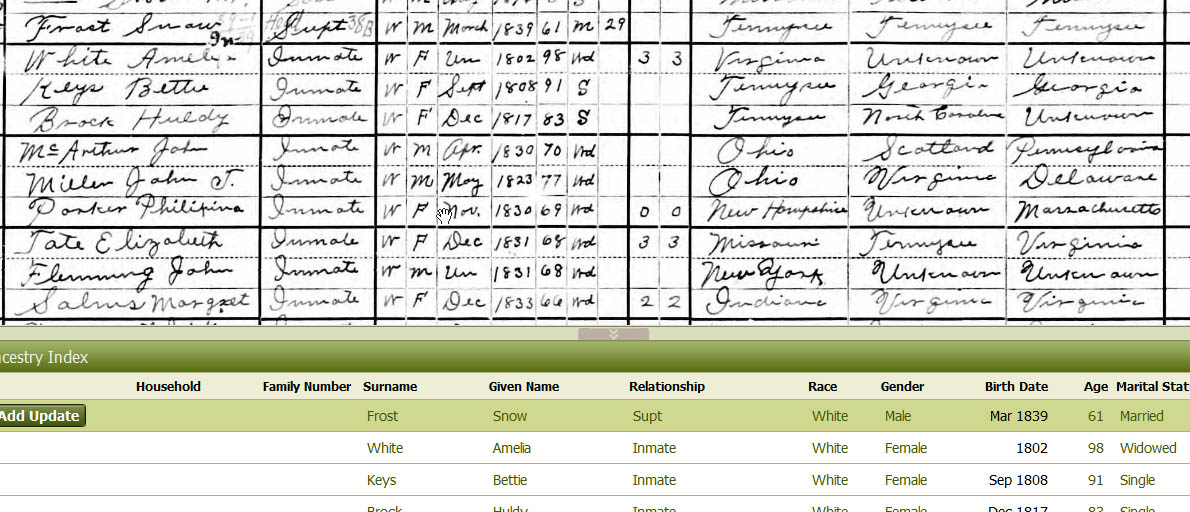 Frost Snow Supt W M March 1839 61 M 29 Tennysee Tennysee Tennysee
White Amelia Inmate W F Un 1802 98 Wd 3 3 Virginia Unknown Unknown
Keys Bettie Inmate W F Sept 1808 91 S Tennysee Georgia Georgia
Brock Huldy Inmate W F Dec 1817 83 S Tennysee North Carolina Unknown
McArthur John Inmate W M Apr. 1830 70 Wd Ohio Scotland Pennsylvania
Miller John T. Inmate W M May 1823 77 Wd Ohio Virginia Delaware
Parker Philipina Inmate W F Nov. 1830 69 Wd 0 0 New Hampshire Unknown Massachusetts
Tate Elizabeth Inmate W F Dec 1831 68 Wd 3 3 Missouri Tennysee Virginia
Flemming John Inmate W M Un 1831 68 Wd New York Unknown Unknown
Salms Margret Inmate W F Dec 1833 66 Wd 2 2 Indiana Virginia Virginia
cestry Index
Household Family Number Surname Given Name Relationship Race Gender Birth Date Age Marital Stat
Add Update Frost Snow Supt White Male Mar 1839 61 Married
White Amelia Inmate White Female 1802 98 Widowed
Keys Bettie Inmate White Female Sep 1808 91 Single
Brock Huldy Inmate White Female Dec 1817 83 Single